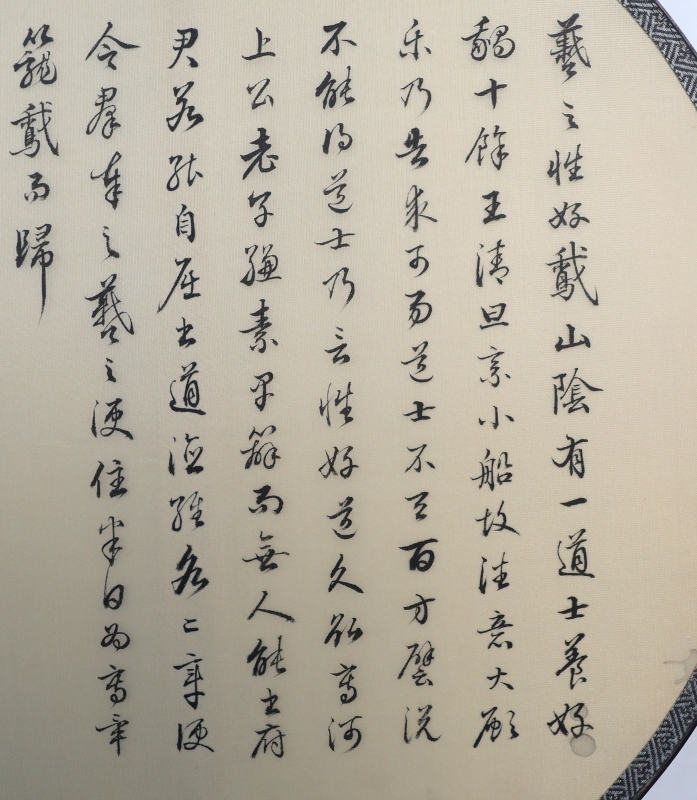 羲之性好鵞山陰有一道士養好
鵝十餘王清旦乘小船故往意大願
樂乃告求市易道士不與百方譬說
不能得道士乃言性好道久欲寫河
上公老子縑素早辦而無人能書府
君若能自屈書道德經各二章便
令羣奉之羲之便住半日為寫畢
籠鵞而歸